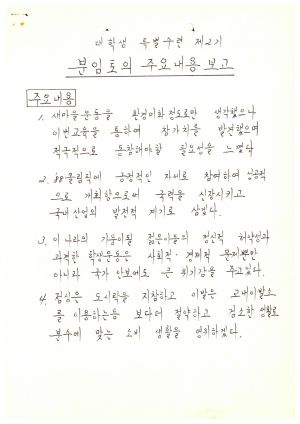 대학생 특별수련 제2기
분임토의 주요내용 보고
주요내용
1. 새마을운동을 환경미화 정도로만 생각했으나
이번교육을 통하여 참가치를 발견했으며
적극적으로 동참해야할 필요성을 느꼈다
2. 88올림픽에 긍정적인 자세로 참여하여 성공적
으로 개최함으로써 국력을 신장시키고
국내산업의 발전적 계기로 삼았다.
3. 이 나라의 기둥이될 젊은이들의 정신적 허약성과
과격한 학생운동은 사회적·경제적 문제뿐만
아니라 국가 안보에도 큰 위기감을 주고있다.
4. 점심은 도시락을 지참하고 이발은 교내이발소
를 이용하는등 보다더 절약하고 검소한 생활로
분수에 맞는 소비 생활을 영위하겠다.